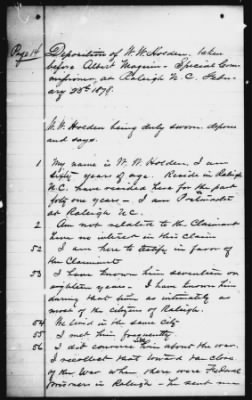 Page 14
Deposition of W. W. Holden. taken
before Albert Magruder - Special Com-
missioner, at Raleigh N.C. Febru-
ary 28th 1878.
W. W. Holden being duly sworn deposes
and says.
1 My name is W. W. Holden, I am
sixty years of age. Reside in Raleigh
N.C. have resided here for the past
forty one years - I am Postmaster
at Raleigh N.C.
2 Am not related to the Claimant
have no interest in this Claim
52 I am here to testify in favor of
the Claimant
53 I have known him seventeen or
eighteen years - I have known him
during that time as intimately as
most of the citizens of Raleigh.
54 He lived in the same city
55 I met him frequently
56 I did converse with him about the war.
I recollect that toward the close
of the War when there were Federal
prisoners in Raleigh - he sent me